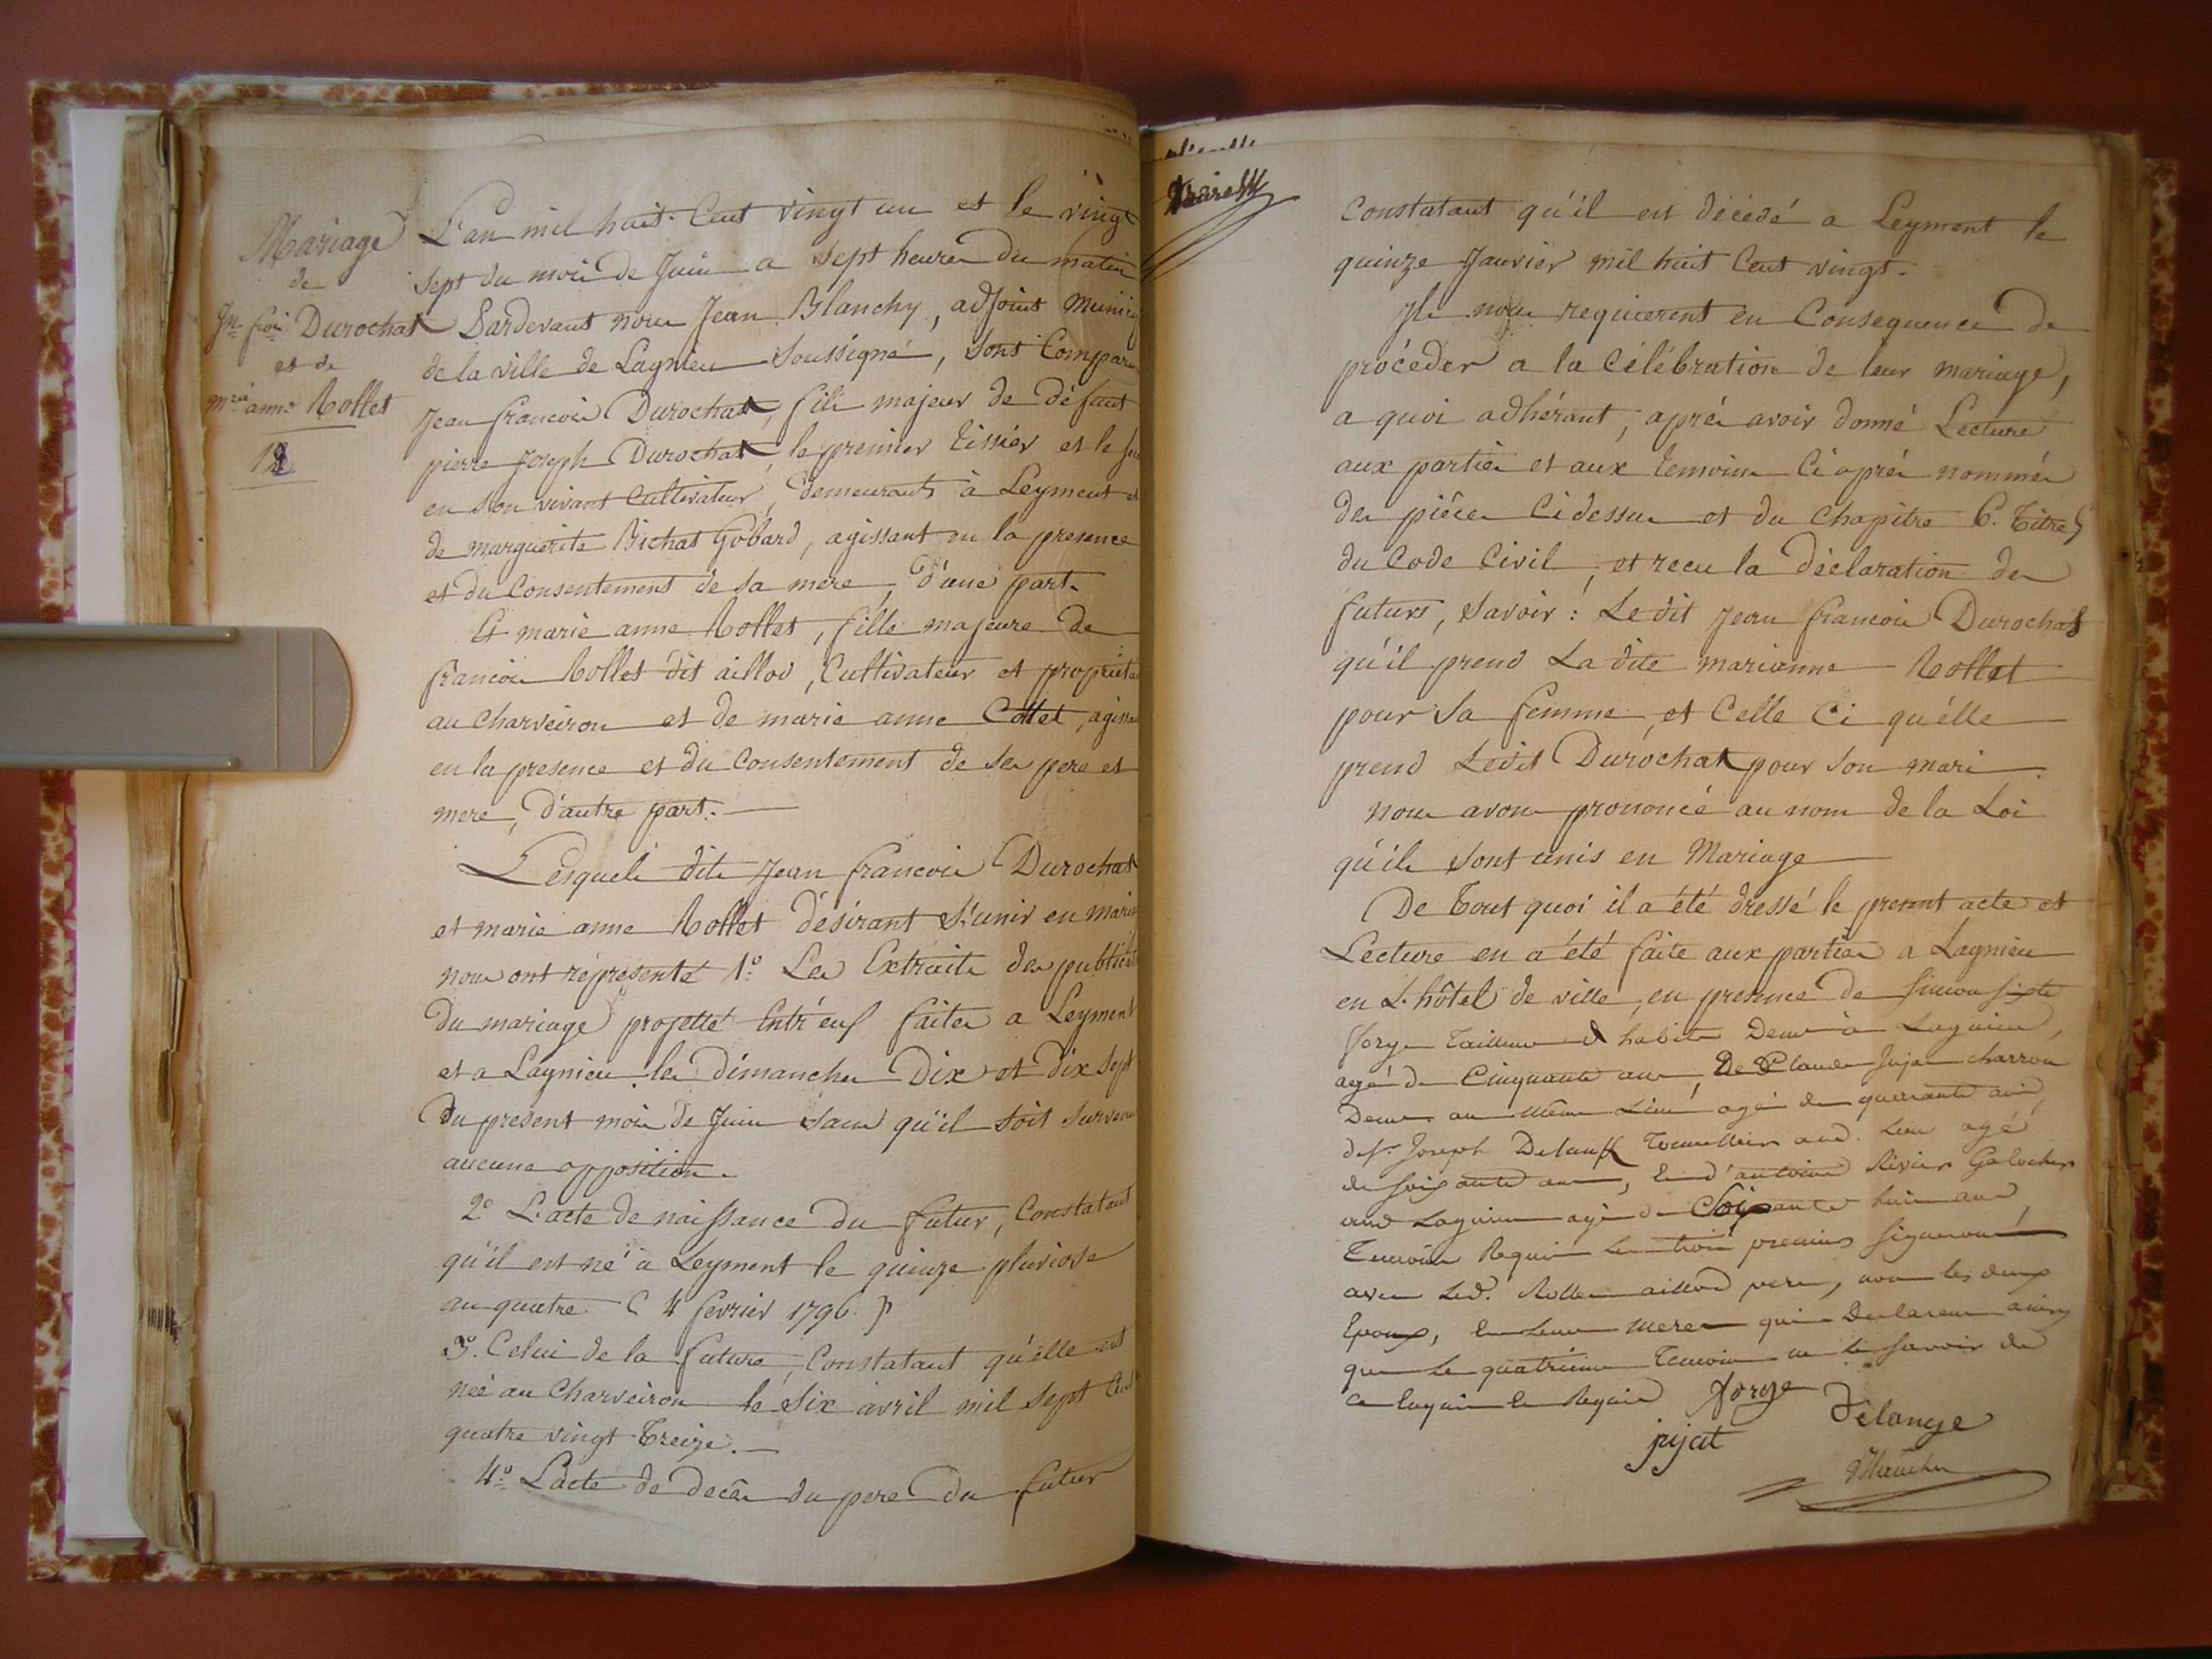 Mariage
de
Jn. fois. Durochat
et de
mie. anne Rollet
12
L'an mil huit Cent vingt un et le vingt
sept du mois de Juin a sept heures du matin
Pardevant nous Jean Blanchy, adjoint Munici
de la ville de Lagnieu soussigné, sont Comparu
Jean francois Durochat, fils majeur de défunt
pierre Joseph Durochat, le premier tissier et le
en son vivant Cultivateur, demeurants à Leyment et
de marguerite Bichat Gobard, agissant en la presence
et du Consentement de sa mere, d'une part.
Et marie anne Rollet, fille majeure de
francois Rollet dit aillod, Cultivateur et proprieta
au Charveiron et de marie anne Collet, agissa
en la presence et du Consentement de ses pere et
mere, d'autre part.
Lesquels dits Jean francois Durochat
et marie anne Rollet désirant s'unir en maria
nous ont répresenté 1.° Les Extraits des publicat
du mariage projetté Entr'eux faites a Leyment
et a Lagnieu les Dimanches Dix et dix sept
du present mois de Juin sans qu'il soit survenu
aucune opposition.
2.° L'acte de naissance du futur, Constatant
qu'il est né à Leyment le quinze pluviose
an quatre ( 4 fevrier 1796. )
3.° Celui de la future, Constatant qu'elle est
née au Charveiron le six avril mil sept Cent
quatre vingt Treize.
4.° L'acte de decès du pere du futur
constatant qu'il est décédé a Leyment le
quinze Janvier mil huit Cent vingt.
Ils nous requierent en Consequence de
procéder a la Célébration de leur mariage,
a quoi adhérant, après avoir donné Lecture
aux parties et aux temoins Ci après nommés
des pièces Cidessus et du Chapitre 6. Titre 5
du Code Civil, et recu la déclaration des
futurs, Savoir : Le dit Jean francois Durochat
qu'il prend La dite marianne Rollet
pour sa femme, et Celle Ci qu'elle
prend Ledit Durochat pour son mari.
nous avons prononcé au nom de la Loi
qu'ils sont unis en Mariage
De Tout quoi il a été dressé le present acte et
Lecture en a été faite aux parties a Lagnieu
en L'hôtel de ville, en presence de Simon Sixte
forge Tailleur d'habits Demt à Lagnieu,
agé de Cinquante ans, De Claude Pijat charron
Demt au même Lieu agé de quarante ans,
de Sr. Joseph Delange aud. Lieu agé
de soixante ans, et d'antoine Rivier Galochier
aud Lagnieu agé de Soixante huit ans,
Temoins Requis les trois premiers signeront
avec Led. Rollet aillod pere, non les deux
Epoux, et leurs meres qui Declarent ainsy
que le quatrieme Temoin ne le savoir de
ce enquis et Requis forge
Delange
pijat
Blanchy